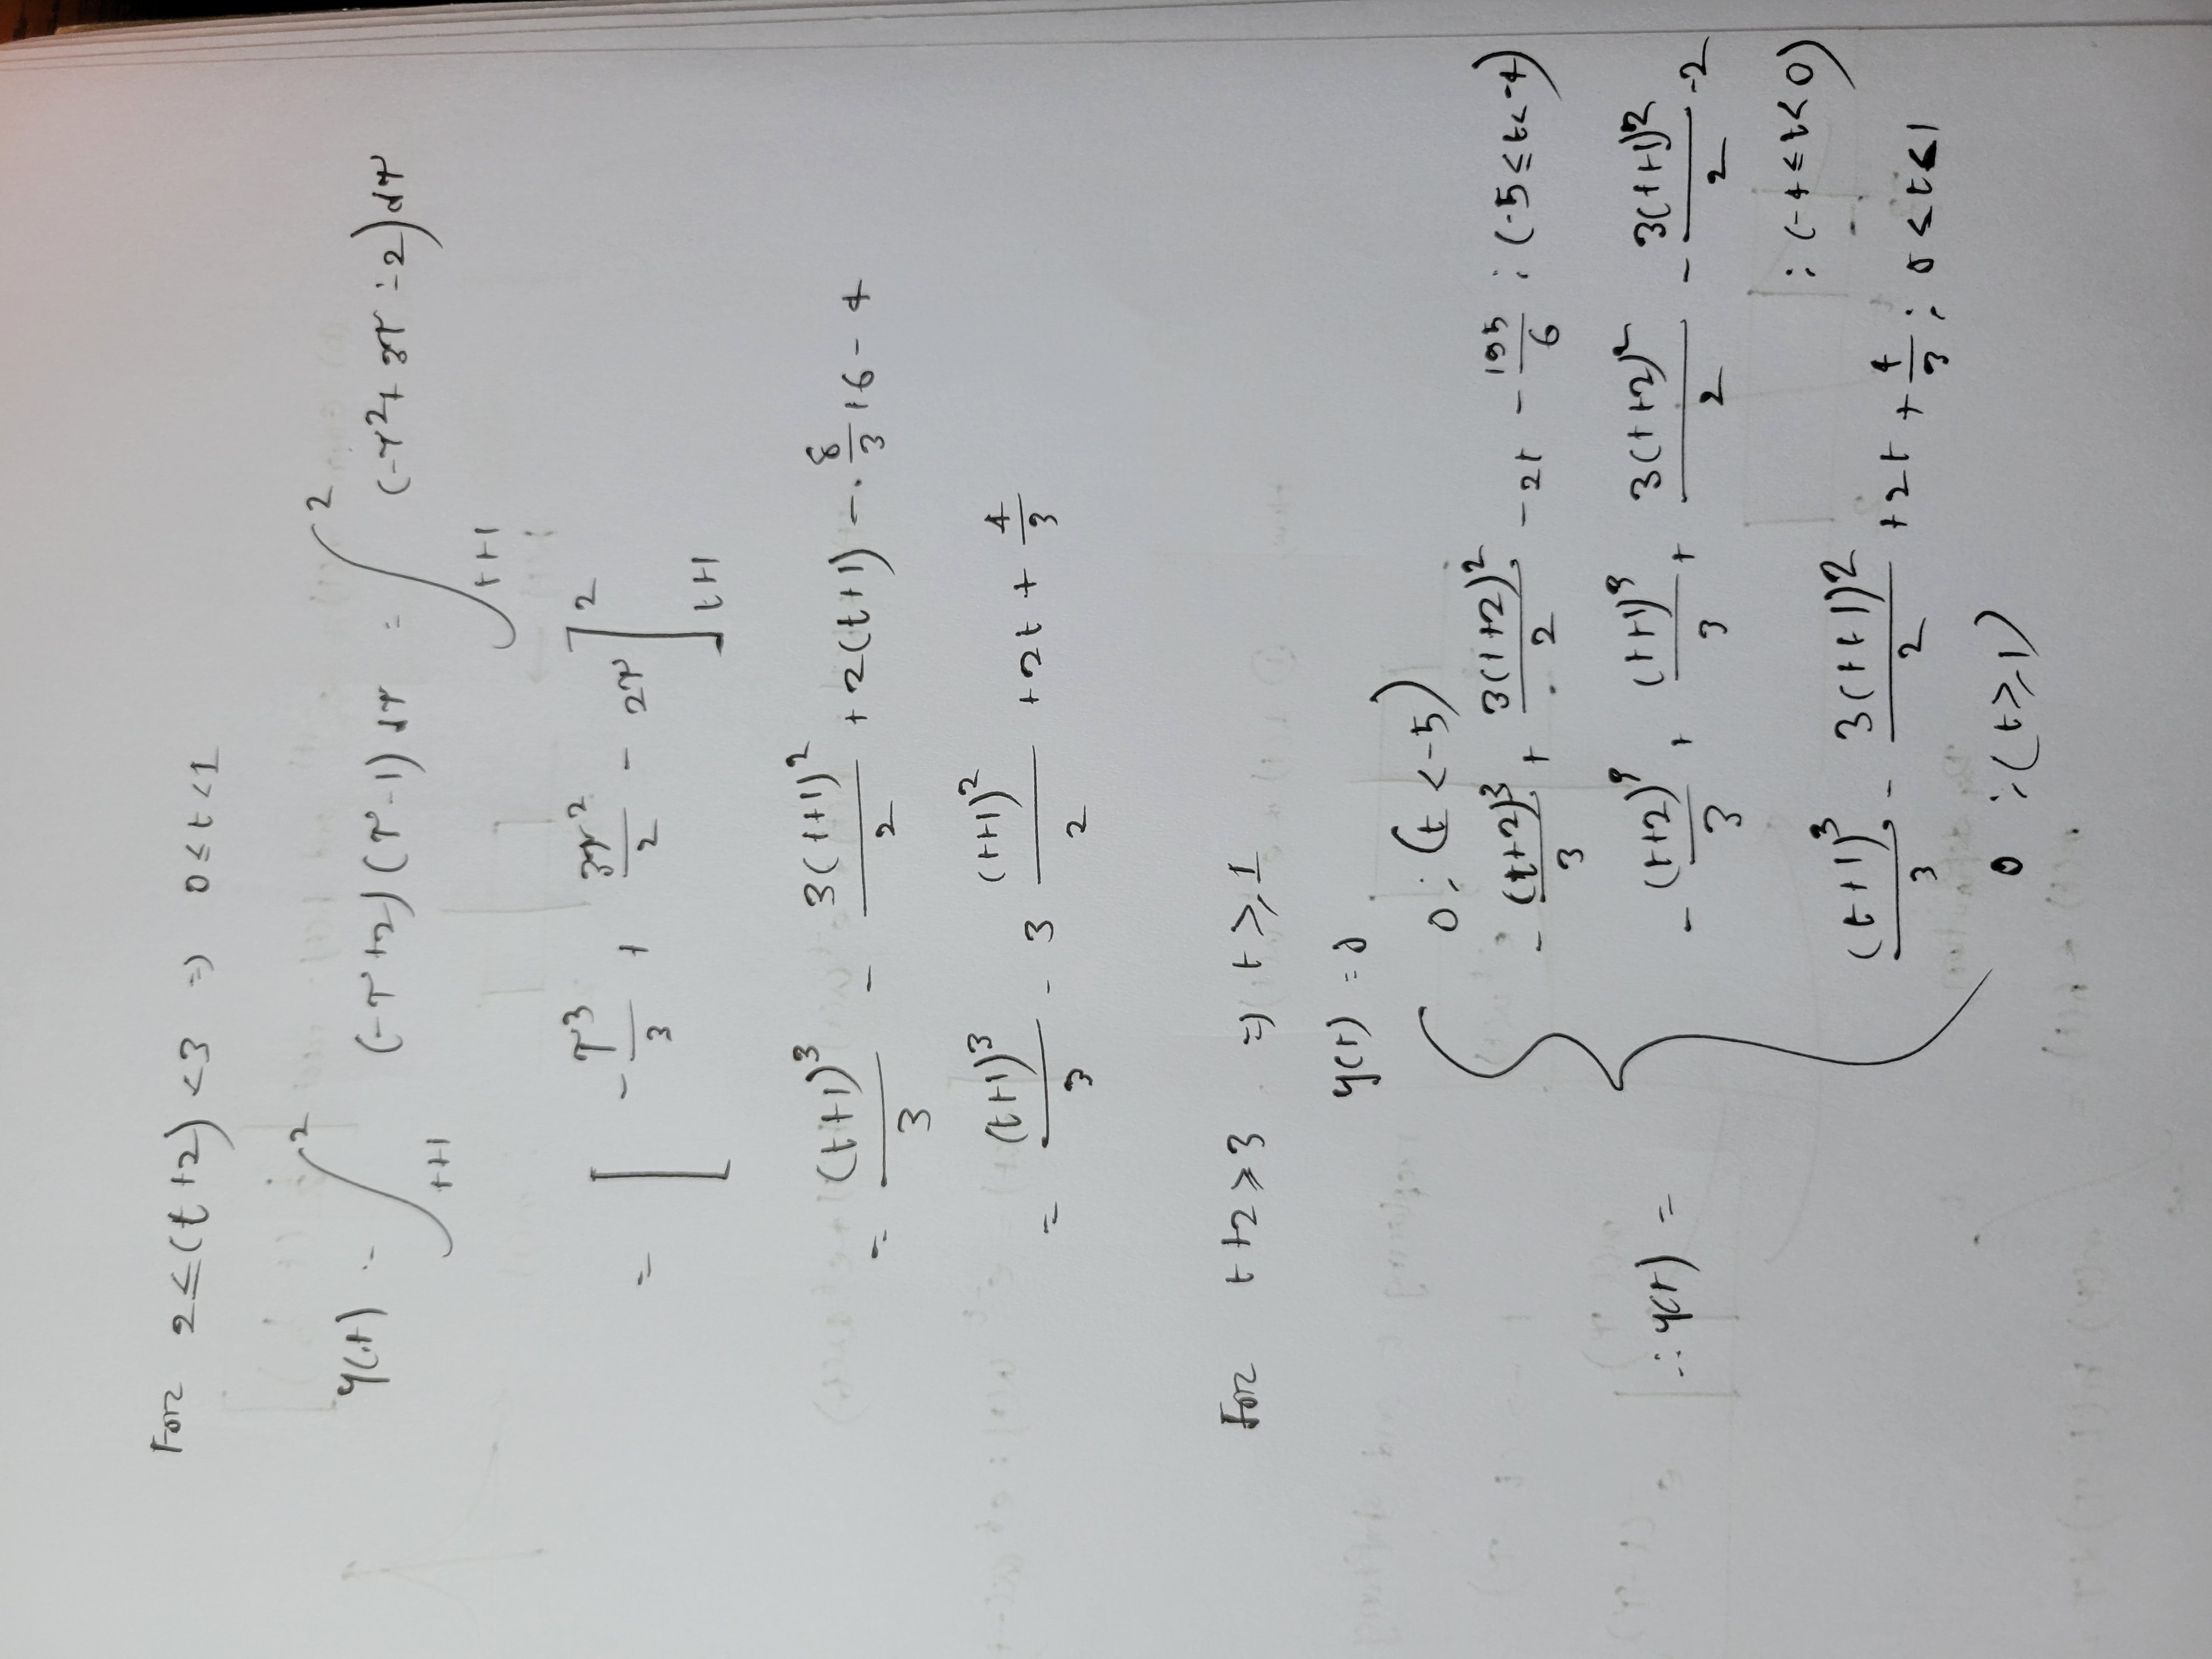 For 2 ≤ (t+2) < 3 ⇒ 0 ≤ t < 1
y(t) = ∫_{t+1}^{2} (-τ+2)(τ-1) dτ = ∫_{t+1}^{2} (-τ²+3τ-2) dτ
= [ -τ³/3 + 3τ²/2 - 2τ ]_{t+1}^{2}
= (t+1)³/3 - 3(t+1)²/2 + 2(t+1) - 8/3 + 6 - 4
= (t+1)³/3 - 3 (t+1)²/2 + 2t + 4/3
For t+2 ≥ 3 ⇒ t ≥ 1
y(t) = 0
∴ y(t) = { 0 ; (t < -5)
-(t+2)³/3 + 3(t+2)²/2 - 2t - 195/6 ; (-5 ≤ t < -4)
-(t+2)³/3 + (t+1)³/3 + 3(t+2)²/2 - 3(t+1)²/2 - 2
; (-4 ≤ t < 0)
(t+1)³/3 - 3(t+1)²/2 + 2t + 4/3 ; 0 ≤ t ≤ 1
0 ; (t ≥ 1)